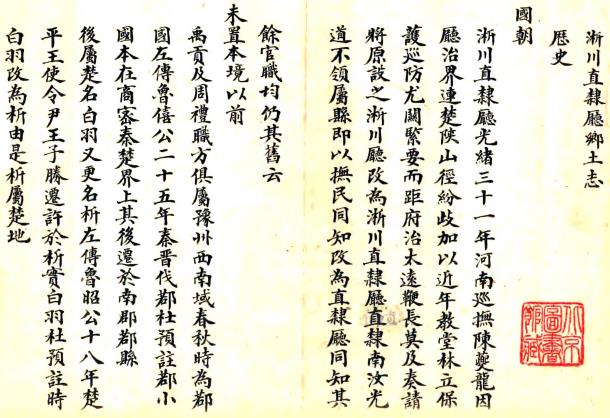 淅川直隸廳鄉土志
歷史
國朝
淅川直隸廳光緒三十一年河南巡撫陳夔龍因
廳治界連楚陝山徑紛歧加以近年教堂林立保
護巡防尤關緊要而距府治太遠鞭長莫及奏請
將原設之淅川廳改為淅川直隸廳直隸南汝光
道不領屬縣即以撫民同知改為直隸廳同知其
餘官職均仍其舊云
未置本境以前
禹貢及周禮職方俱屬豫州西南域春秋時為鄀
國左傳魯僖公二十五年秦晉伐鄀杜預註鄀小
國本在商密秦楚界上其後遷於南郡鄀縣
後屬楚名白羽又更名析左傳魯昭公十八年楚
平王使令尹王子勝遷許於析實白羽杜預註時
白羽改為析由是析屬楚地